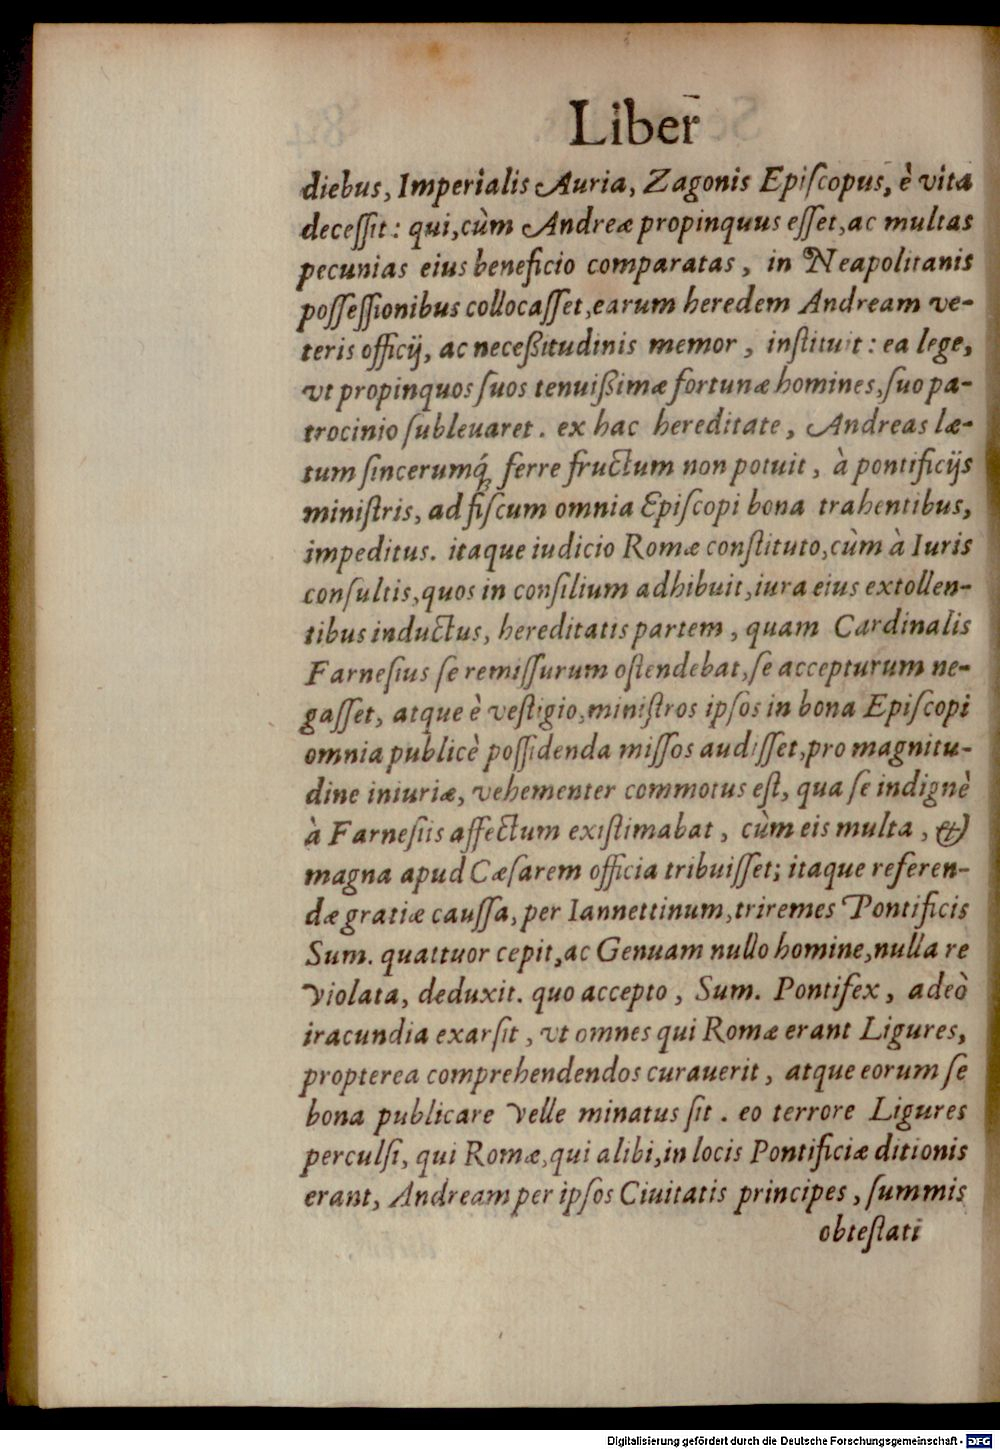 Liber
diebus, Imperialis Auria, Zagonis Epiſcopus, è vita
deceſſit: qui, cùm Andreæ propinquus eſſet, ac multas
pecunias eius beneficio comparatas, in Neapolitanis
poſſeſſionibus collocaſſet, earum heredem Andream ve-
teris officij, ac neceßitudinis memor, inſtituit: ea lege,
vt propinquos ſuos tenuißimæ fortunæ homines, ſuo pa-
trocinio ſubleuaret. ex hac hereditate, Andreas læ-
tum ſincerumq́; ferre fructum non potuit, à pontificijs
miniſtris, ad fiſcum omnia Epiſcopi bona trahentibus,
impeditus. itaque iudicio Romæ conſtituto, cùm à Iuris
conſultis, quos in conſilium adhibuit, iura eius extollen-
tibus inductus, hereditatis partem, quam Cardinalis
Farneſius ſe remiſſurum oſtendebat, ſe accepturum ne-
gaſſet, atque è veſtigio, miniſtros ipſos in bona Epiſcopi
omnia publicè poſſidenda miſſos audiſſet, pro magnitu-
dine iniuriæ, vehementer commotus eſt, qua ſe indignè
à Farneſiis affectum exiſtimabat, cùm eis multa, &
magna apud Cæſarem officia tribuiſſet; itaque referen-
dæ gratiæ cauſſa, per Iannettinum, triremes Pontificis
Sum. quattuor cepit, ac Genuam nullo homine, nulla re
violata, deduxit. quo accepto, Sum. Pontifex, adeò
iracundia exarſit, vt omnes qui Romæ erant Ligures,
propterea comprehendendos curauerit, atque eorum ſe
bona publicare velle minatus ſit. eo terrore Ligures
perculſi, qui Romæ, qui alibi, in locis Pontificiæ ditionis
erant, Andream per ipſos Ciuitatis principes, ſummis
obteſtati
Digitalisierung gefördert durch die Deutsche Forschungsgemeinschaft - DFG